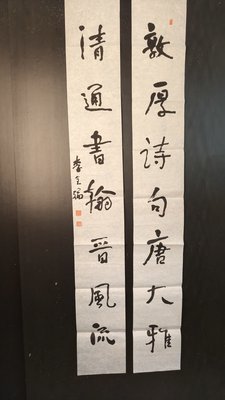 敦厚诗句唐大雅
清通書翰晋風流